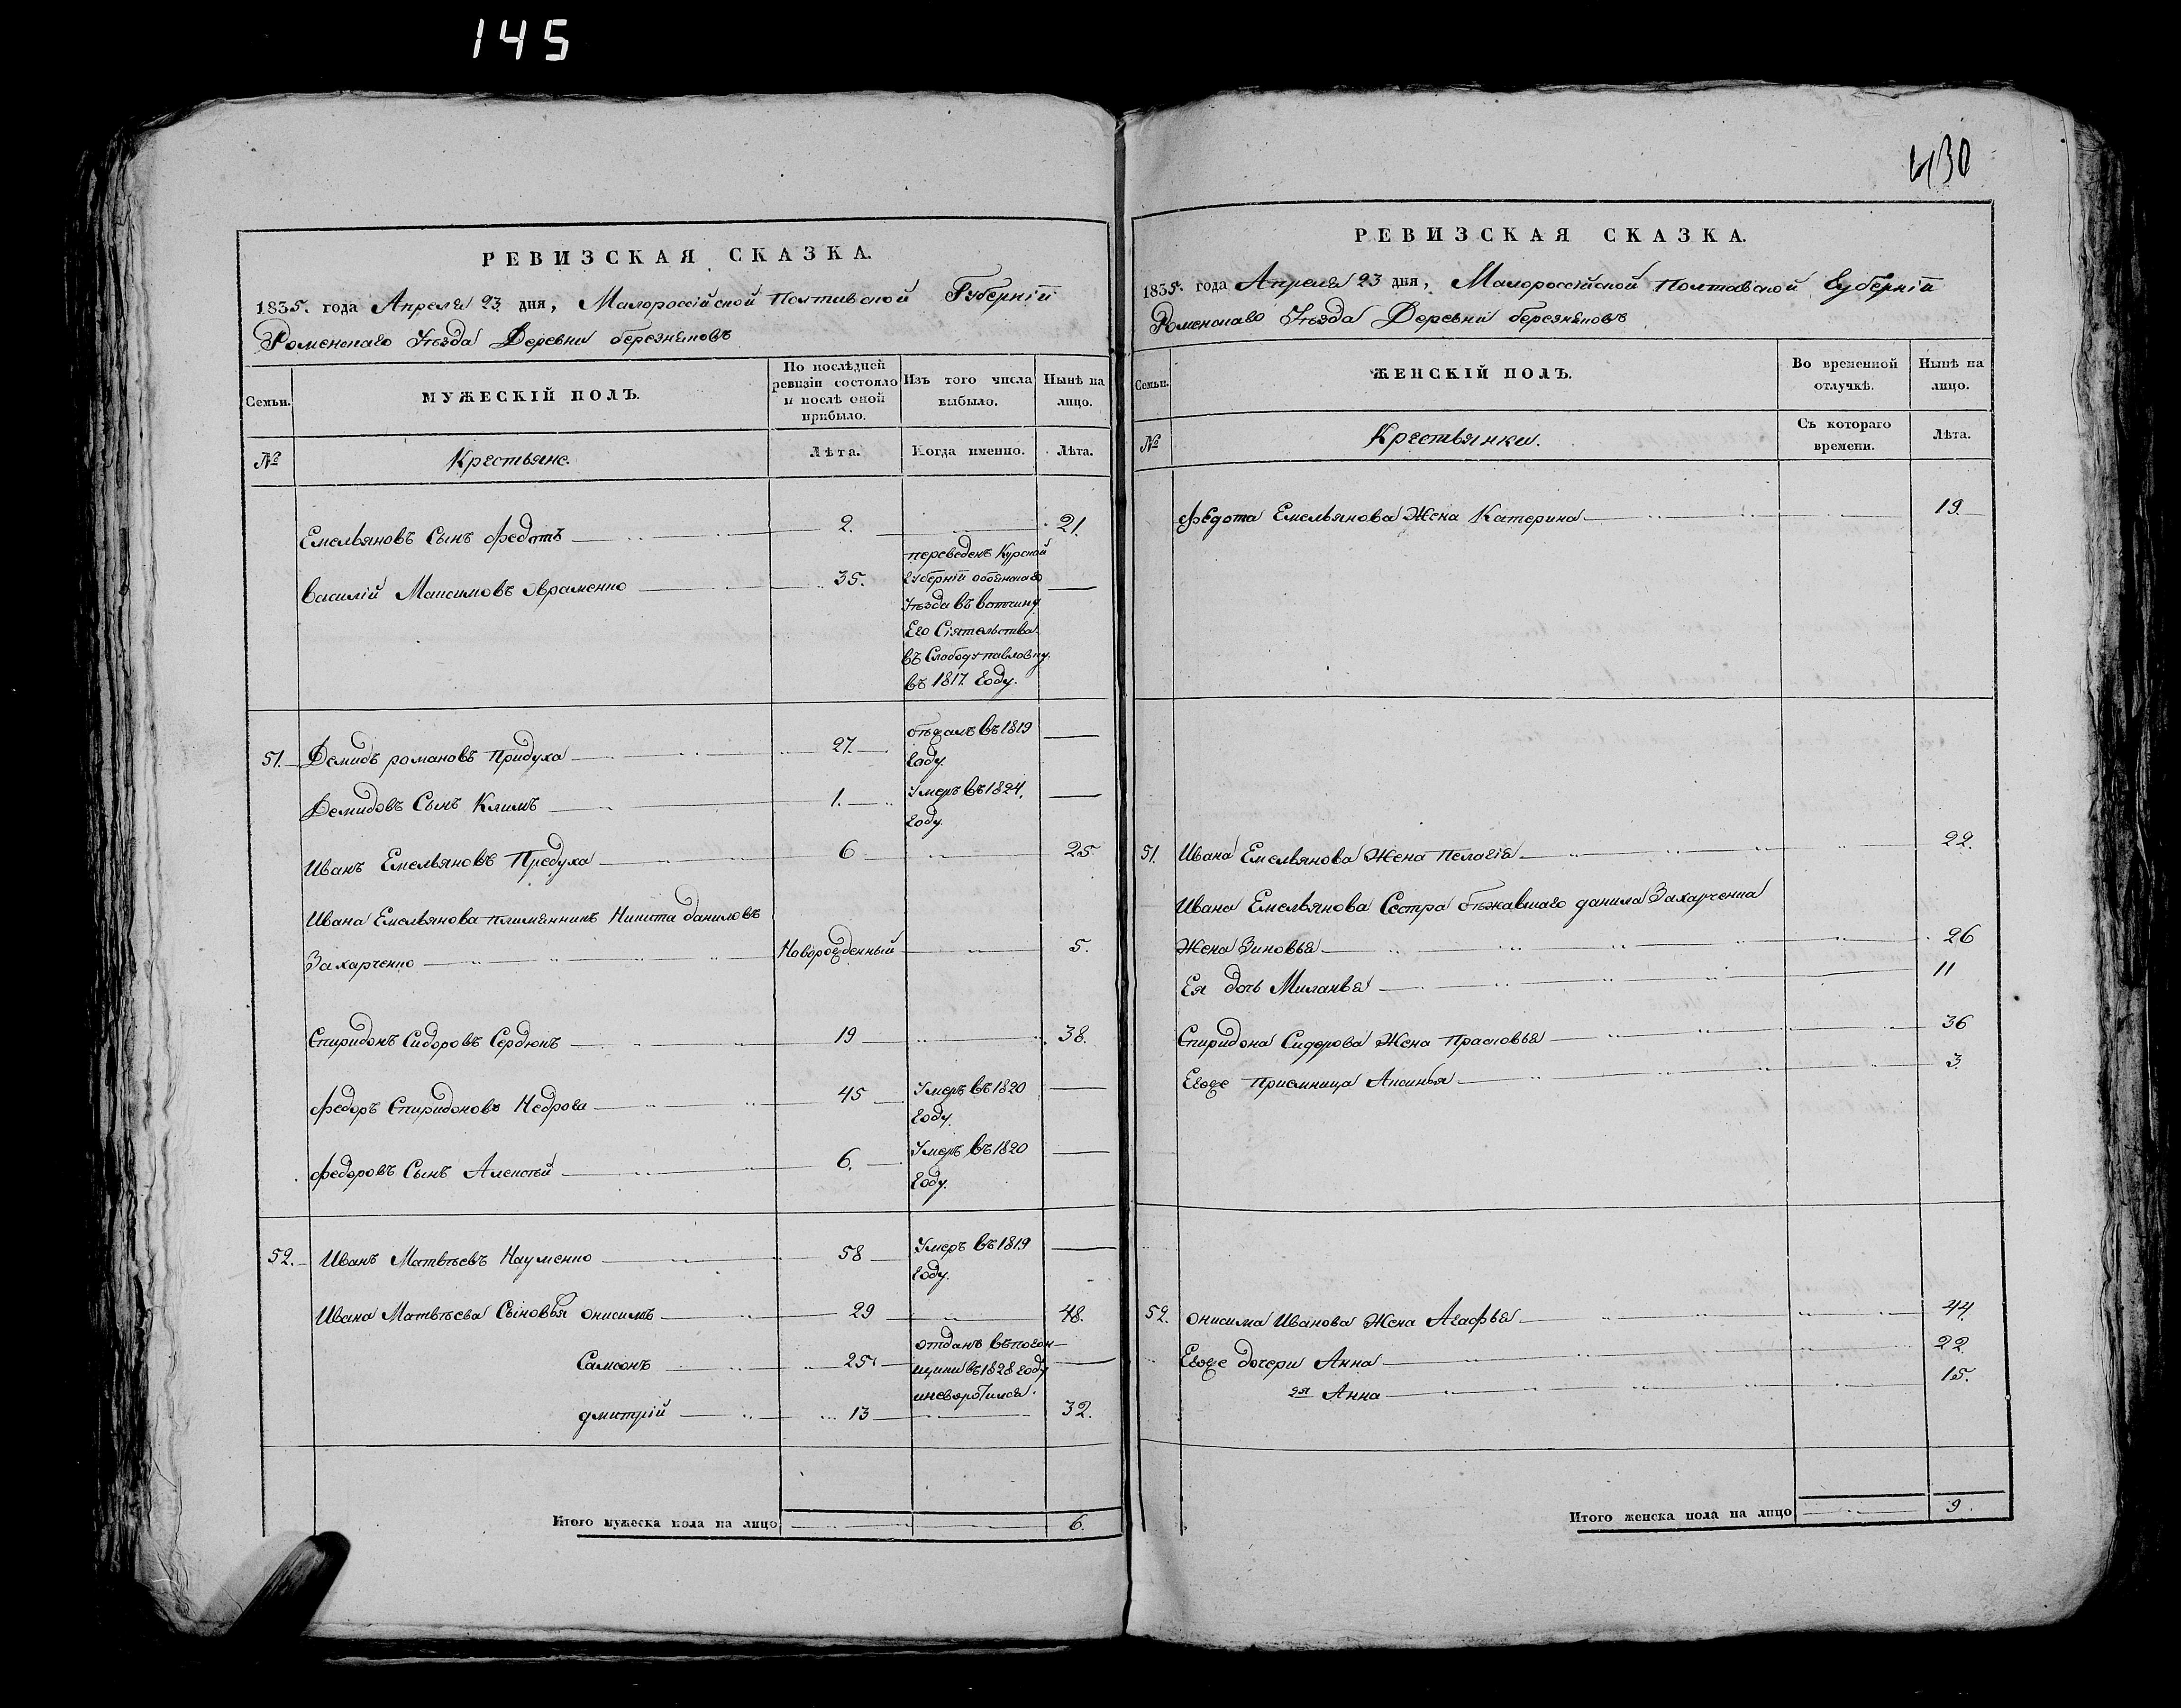 145
430
РЕВИЗСКАЯ СКАЗКА.
1835. года Апреля 23 дня, Малороссійской Полтавской Губерніи
Роменскаго Уѣзда Деревни березняковъ
Семьи.
МУЖЕСКІЙ ПОЛЪ.
По послѣдней ревизіи состояло и послѣ оной прибыло.
Изъ того числа выбыло.
Нынѣ на лицо.
№
Крестьяне.
Лѣта.
Когда именно.
Лѣта.
Емельяновъ Сынъ Федотъ 2. 21.
Василій Максимовъ Авраменко 35.
переведенъ Курской
Губерніи обоянскаго
Уѣзда въ вотчину
Его Сіятельства
въ Слободу павловку
въ 1817. Году.
51. Демидъ романовъ Придуха 27. бѣжалъ въ 1819
Году.
Демидовъ Сынъ Климъ 1. Умеръ въ 1824.
Году.
Иванъ Емельяновъ Предуха 6 25.
Ивана Емельянова племянникъ Никита даниловъ
Захарченко Новорожденный 5.
Спиридонъ Сидоровъ Сердюкъ 19 38.
Федоръ Спиридоновъ 45 Умеръ въ 1820
Году.
Федоровъ Сынъ Алексѣй 6. Умеръ въ 1820
Году.
52. Иванъ Матвѣевъ Науменко 58 Умеръ въ 1819
Году.
Ивана Матвѣева Сыновья онисимъ 29 48.
Самсонъ 25 отданъ въ погон-
щики въ 1828 Году
дмитрій 13 32.
Итого мужеска пола на лицо 6.
РЕВИЗСКАЯ СКАЗКА.
1835. года Апреля 23 дня, Малороссійской Полтавской Губерніи
Роменскаго Уѣзда Деревни березняковъ
Семьи.
ЖЕНСКІЙ ПОЛЪ.
Во временной отлучкѣ.
Нынѣ на лицо.
№
Крестьянки.
Съ котораго времени.
Лѣта.
Федота Емельянова Жена Катерина 19.
51. Ивана Емельянова Жена Пелагія 22.
Ивана Емельянова Сестра бѣжавшаго данила Захарченка
Жена Зиновья 26
Ея дочь Миланья 11
Спиридона Сидорова Жена Прасковья 36
Егоже Приемница Аксинья 3.
52. Онисима Иванова Жена Агафья 44.
Егоже дочери Анна 22.
2я Анна 15.
Итого женска пола на лицо 9.